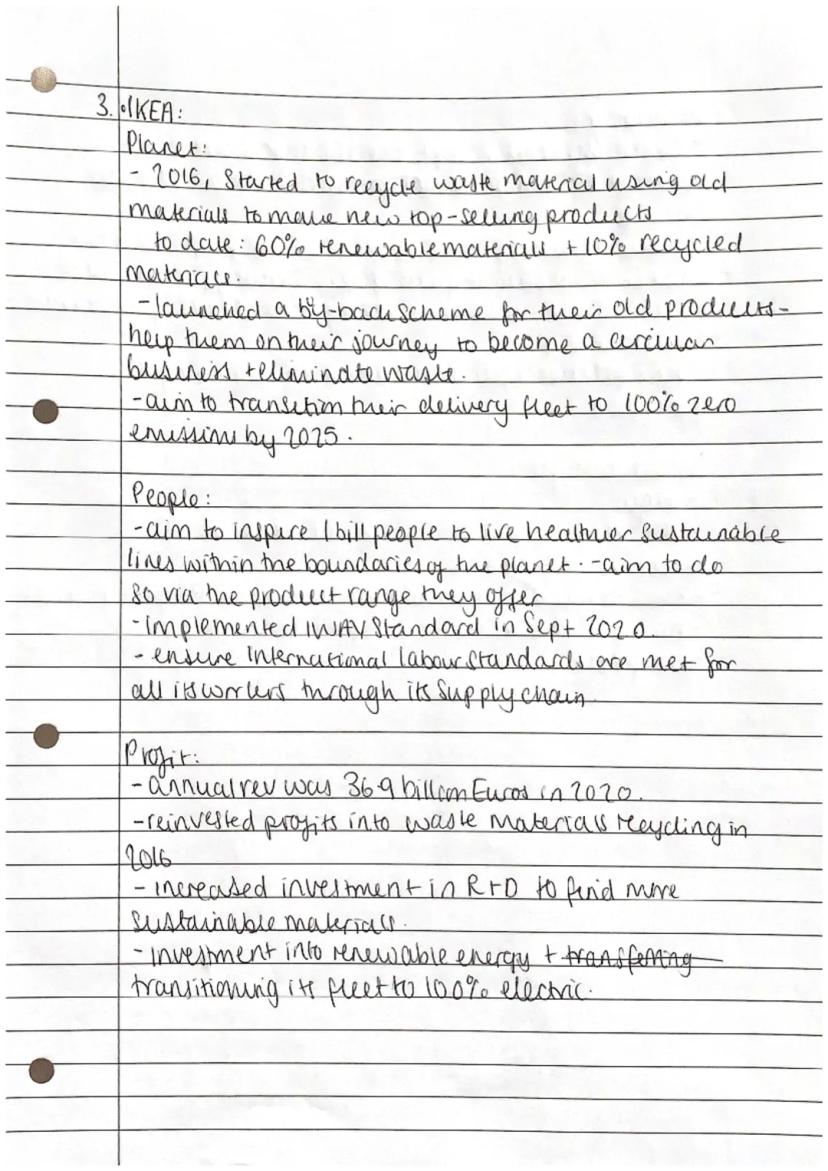 3. •IKEA:
Planet:
- 2016, Started to recycle waste material using old
materials to make new top-selling products
to date: 60% renewable materials + 10% recycled
materials.
- launched a by-back scheme for their old products -
help them on their journey to become a circular
business + eliminate waste.
- aim to transition their delivery fleet to 100% zero
emissions by 2025.
People:
- aim to inspire 1 bill people to live healthier sustainable
lives within the boundaries of the planet. - aim to do
so via the product range they offer
- implemented IWAY Standard in Sept 2020.
- ensure International labour Standards are met for
all its workers through its supply chain
Profit:
- annual rev was 36.9 billion Euros in 2020.
- reinvested profits into waste materials recycling in
2016
- increased investment in R+D to find more
sustainable materials.
- investment into renewable energy + transferring
transitioning its fleet to 100% electric.